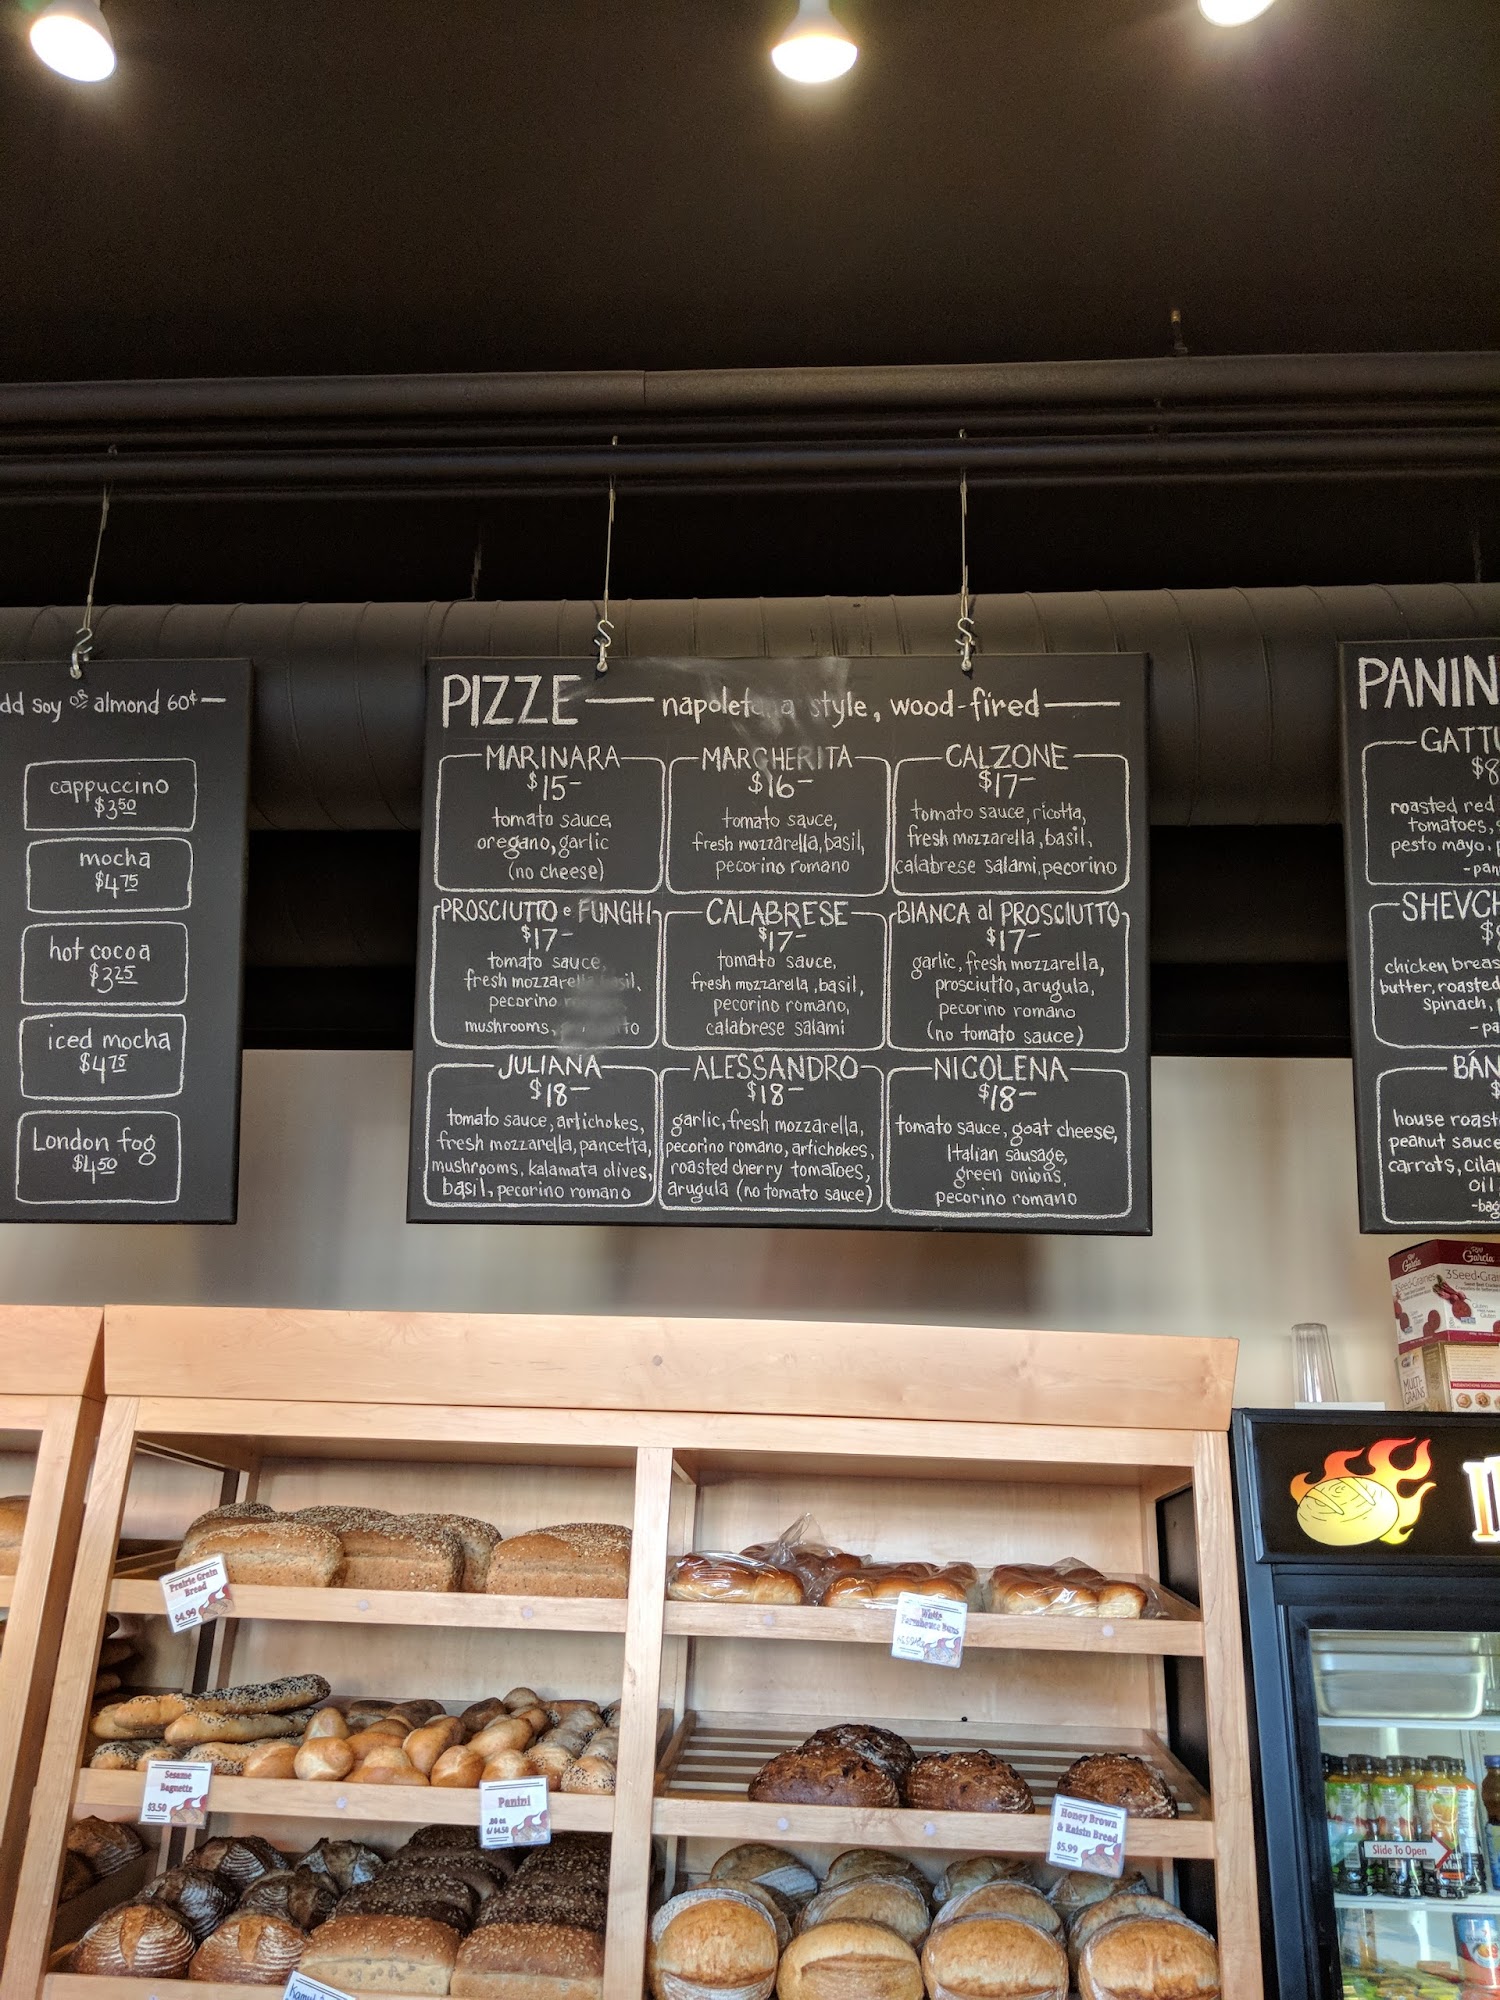 dd soy OR almond 60¢
cappuccino
$3.50
mocha
$4.75
hot cocoa
$3.25
iced mocha
$4.75
London fog
$4.50
PIZZE — napoletana style, wood-fired —
MARINARA
$15-
tomato sauce,
oregano, garlic
(no cheese)
MARGHERITA
$16-
tomato sauce,
fresh mozzarella, basil,
pecorino romano
CALZONE
$17-
tomato sauce, ricotta,
fresh mozzarella, basil,
calabrese salami, pecorino
PROSCIUTTO e FUNGHI
$17-
tomato sauce,
fresh mozzarella, basil,
pecorino
mushrooms,
CALABRESE
$17-
tomato sauce,
fresh mozzarella, basil,
pecorino romano,
calabrese salami
BIANCA al PROSCIUTTO
$17-
garlic, fresh mozzarella,
prosciutto, arugula,
pecorino romano
(no tomato sauce)
JULIANA
$18-
tomato sauce, artichokes,
fresh mozzarella, pancetta,
mushrooms, kalamata olives,
basil, pecorino romano
ALESSANDRO
$18-
garlic, fresh mozzarella,
pecorino romano, artichokes,
roasted cherry tomatoes,
arugula (no tomato sauce)
NICOLENA
$18-
tomato sauce, goat cheese,
Italian sausage,
green onions,
pecorino romano
PANIN
GATTU
$8
roasted red
tomatoes,
pesto mayo,
SHEVCH
chicken breas
butter, roasted
spinach,
BÁN
house roast
peanut sauce
carrots, cila
oil
-bag
Garcia
3 Seed
MULTI-
GRAINS
Prairie Grain
Bread
$4.99
White
Farmhouse Buns
Sesame
Baguette
$3.50
Panini
.80 ea
6/$4.50
Honey Brown
& Raisin Bread
$5.99
Slide To Open
Kamut